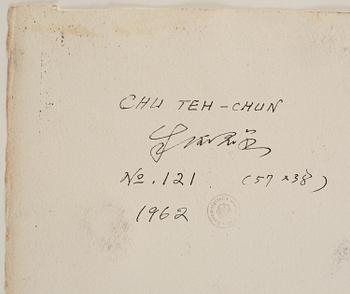 CHU TEH-CHUN
No. 121 (57 x 38)
1962